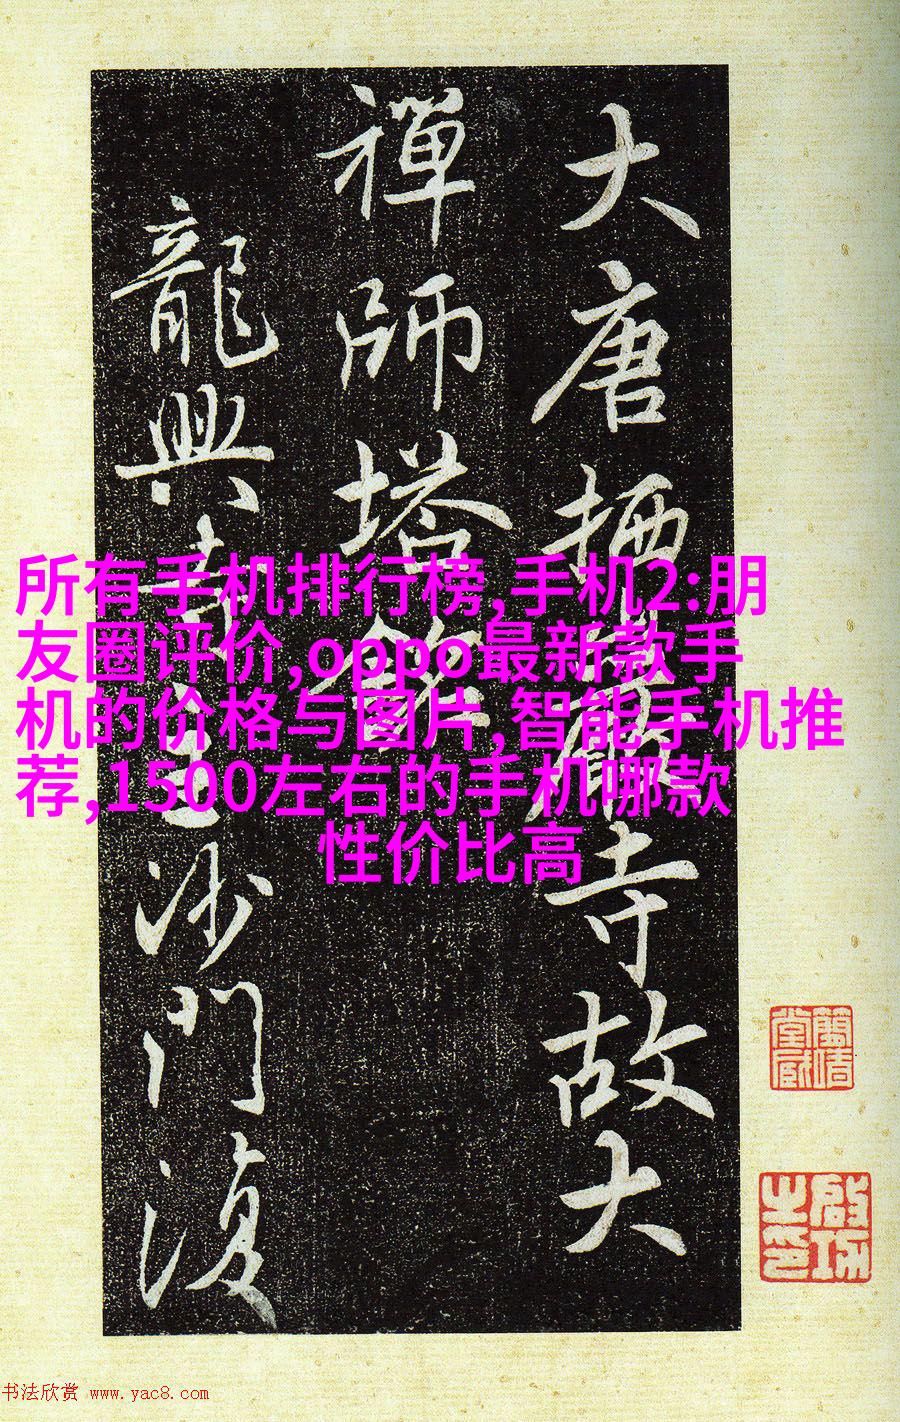 大唐栖巖寺故大
禪師塔銘
龍興寺主沙門復
所有手机排行榜,手机2:朋
友圈评价,oppo最新款手
机的价格与图片,智能手机推
荐,1500左右的手机哪款
性价比高
啟功之印
书法欣赏 www.yac8.com